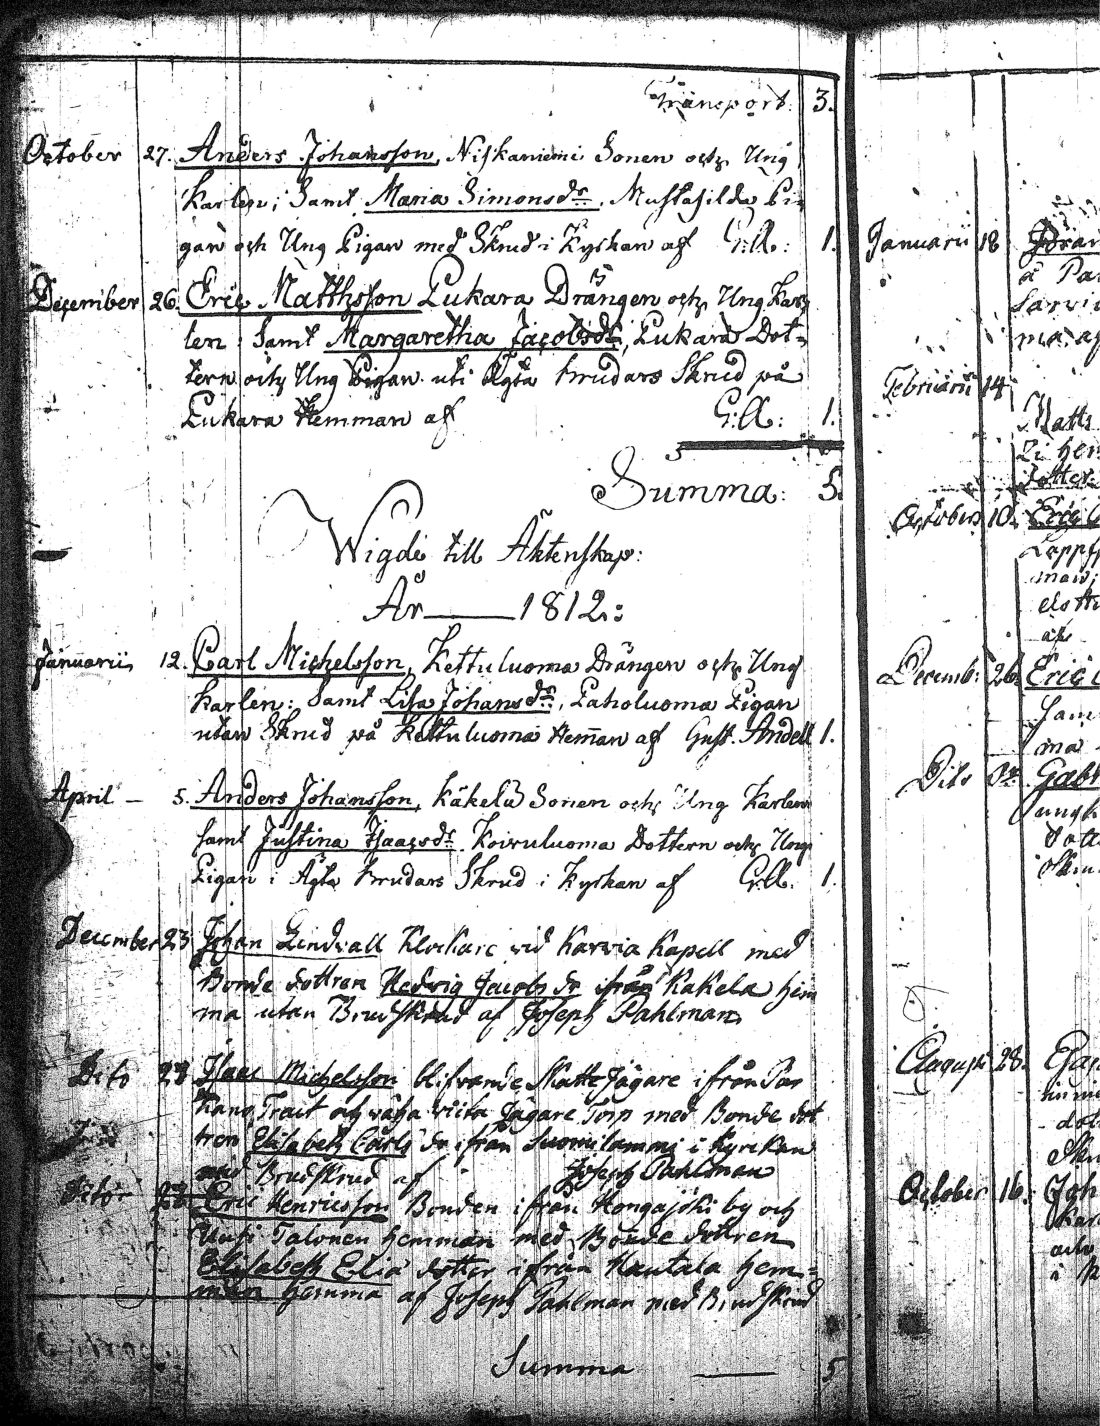 Transport: 3.
October 27. Anders Johansson, Niskaniemi Sonen och Ung
Karlen; Samt Maria Simonsdr. Mustajilda Pi-
gan och Ung Pigan med Skrud i Kyrkan af G:A: 1.
December 26. Eric Matthsson Lukara Drängen och Ung Kar-
len: Samt Margaretha Jacobsdr, Lukara Dot-
tern och Ung Pigan uti Ägta Brudars Skrud på
Lukara Hemman af G:A: 1.
Summa: 5.
Wigde till Äktenskap:
År 1812:
Januarii 12. Carl Michelsson, Kettuluoma Drängen och Ung
Karlen: Samt Lisa Johansdr, Paholuoma Pigan
utan Skrud på Kettuluoma Heman af Gust. Andell 1.
April – 5. Anders Johansson, Käkelä Sonen och Ung Karlen
samt Justina Isaacsdr. Koivuluoma Dottern och Ung
Pigan i Ägta Brudars Skrud i Kyrkan af G:A. 1.
December 23 Johan Lindvall Klockare vid Karvia Kapell med
Bonde dottren Hedvig Jacobs dr ifrån Kakela hem
ma utan Brudskrud af Joseph Pahlman
Dito 28 Isaac Michelsson blifvande Skatte Jägare ifrån Par
kano Trait och Jägare Torp med Bonde dot
tren Elisabeth Carls dr ifrån Suomilammi i Kyrckan
med Brudskrud af Joseph Pahlman
Dito 28 Eric Henricsson Bonden ifrån Hongajoki by och
Uusi Talonen hemman med Bonde dottren
Elisabeth Elia dotter ifrån Hautala hem-
man hemma af Joseph Pahlman med Brudskrud
Summa 5
Januarii 18
å Par
Februarii 14
Matts
dotter
October 10. Eric
Decemb: 26. Eric
ma
Dito Gab
ungk
August 28.
October 16. Joh